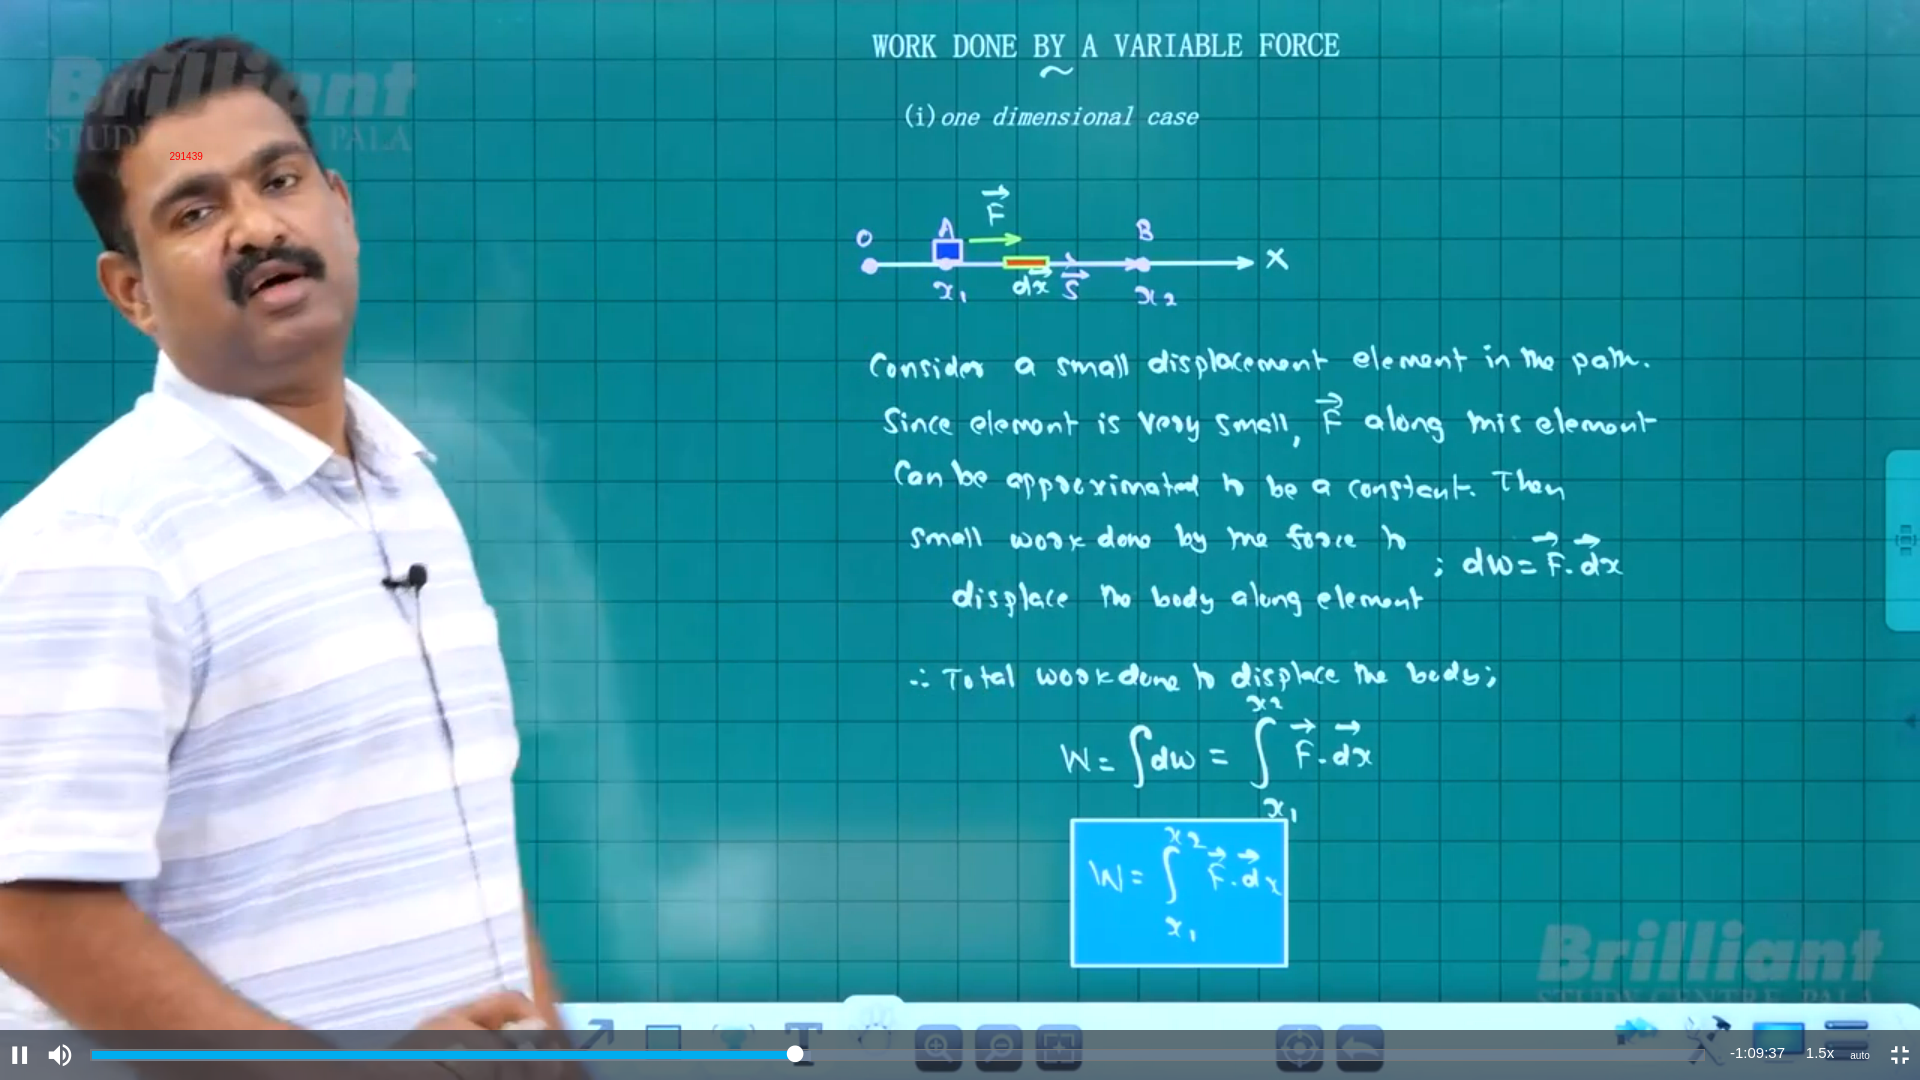 WORK DONE BY A VARIABLE FORCE
Brilliant
STUDY PALA
291439
(i) one dimensional case
F⃗
O A B
X
x₁ d⃗x S⃗ x₂
Consider a small displacement element in the path.
Since element is very small, F⃗ along this element
can be approximated to be a constant. Then
small work done by the force to
displace the body along element ; dw = F⃗. d⃗x
∴ Total work done to displace the body;
W = ∫dw = ∫ₓ₁ˣ² F⃗. d⃗x
W = ∫ₓ₁ˣ² F⃗. d⃗x
Brilliant
STUDY CENTRE, PALA
T
-1:09:37 1.5x auto